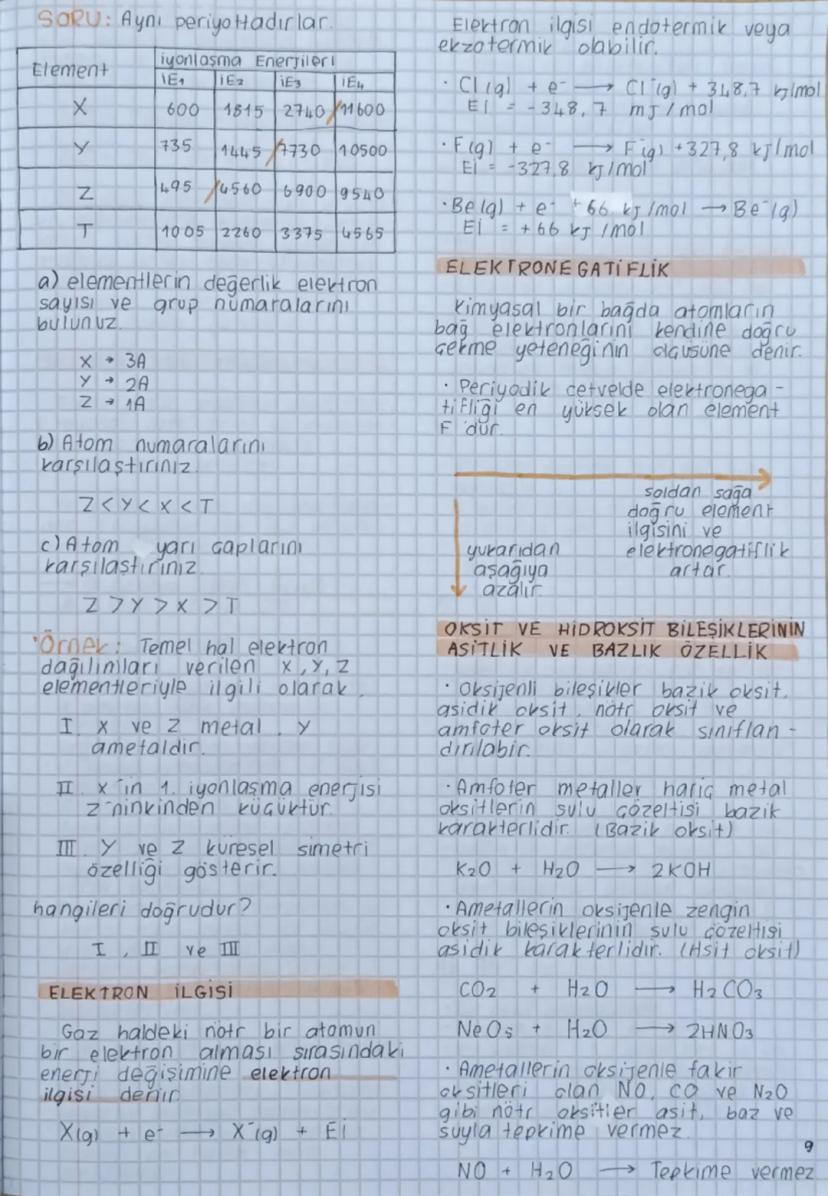 SORU: Aynı periyottadırlar.
Element
iyonlaşma Enerjileri
İE1 İE2 İE3 İE4
X 600 1815 2740 11600
Y 735 1445 7730 10500
Z 495 4560 6900 9540
T 1005 2260 3375 4565
a) elementlerin değerlik elektron
sayısı ve grup numaralarını
bulunuz.
X → 3A
Y → 2A
Z → 1A
b) Atom numaralarını
karşılaştırınız.
Z < Y < X < T
c) Atom yarı çaplarını
karşılaştırınız.
Z > Y > X > T
Örnek: Temel hal elektron
dağılımları verilen X, Y, Z
elementleriyle ilgili olarak,
I. X ve Z metal, Y
ametaldir.
II. X'in 1. iyonlaşma enerjisi
Z'ninkinden küçüktür.
III. Y ve Z küresel simetri
özelliği gösterir.
hangileri doğrudur?
I, II ve III
ELEKTRON İLGİSİ
Gaz haldeki nötr bir atomun
bir elektron alması sırasındaki
enerji değişimine elektron
ilgisi denir.
X(g) + e⁻ → X⁻(g) + Ei
Elektron ilgisi endotermik veya
ekzotermik olabilir.
· Cl(g) + e⁻ → Cl⁻(g) + 348,7 kj/mol
Ei = -348,7 mj/mol
· F(g) + e⁻ → F(g) +327,8 kj/mol
Ei = -327,8 kj/mol
· Be(g) + e⁻ + 66 kj/mol → Be⁻(g)
Ei = +66 kj/mol
ELEKTRONEGATİFLİK
Kimyasal bir bağda atomların
bağ elektronlarını kendine doğru
çekme yeteneğinin ölçüsüne denir.
· Periyodik cetvelde elektronega-
tifliği en yüksek olan element
F'dür.
soldan sağa
doğru element
ilgisini ve
elektronegatiflik
artar.
yukarıdan
aşağıya
azalır.
OKSİT VE HİDROKSİT BİLEŞİKLERİNİN
ASİTLİK VE BAZLIK ÖZELLİK
· Oksijenli bileşikler bazik oksit,
asidik oksit, nötr oksit ve
amfoter oksit olarak sınıflan-
dırılabir.
· Amfoter metaller hariç metal
oksitlerin sulu çözeltisi bazik
karakterlidir. (Bazik oksit)
K₂O + H₂O → 2KOH
· Ametallerin oksijenle zengin
oksit bileşiklerinin sulu çözeltisi
asidik karakterlidir. (Asit oksit)
CO₂ + H₂O → H₂CO₃
NeO₅ + H₂O → 2HNO₃
· Ametallerin oksijenle fakir
oksitleri olan NO, CO ve N₂O
gibi nötr oksitler asit, baz ve
suyla tepkime vermez.
NO + H₂O → Tepkime vermez
9